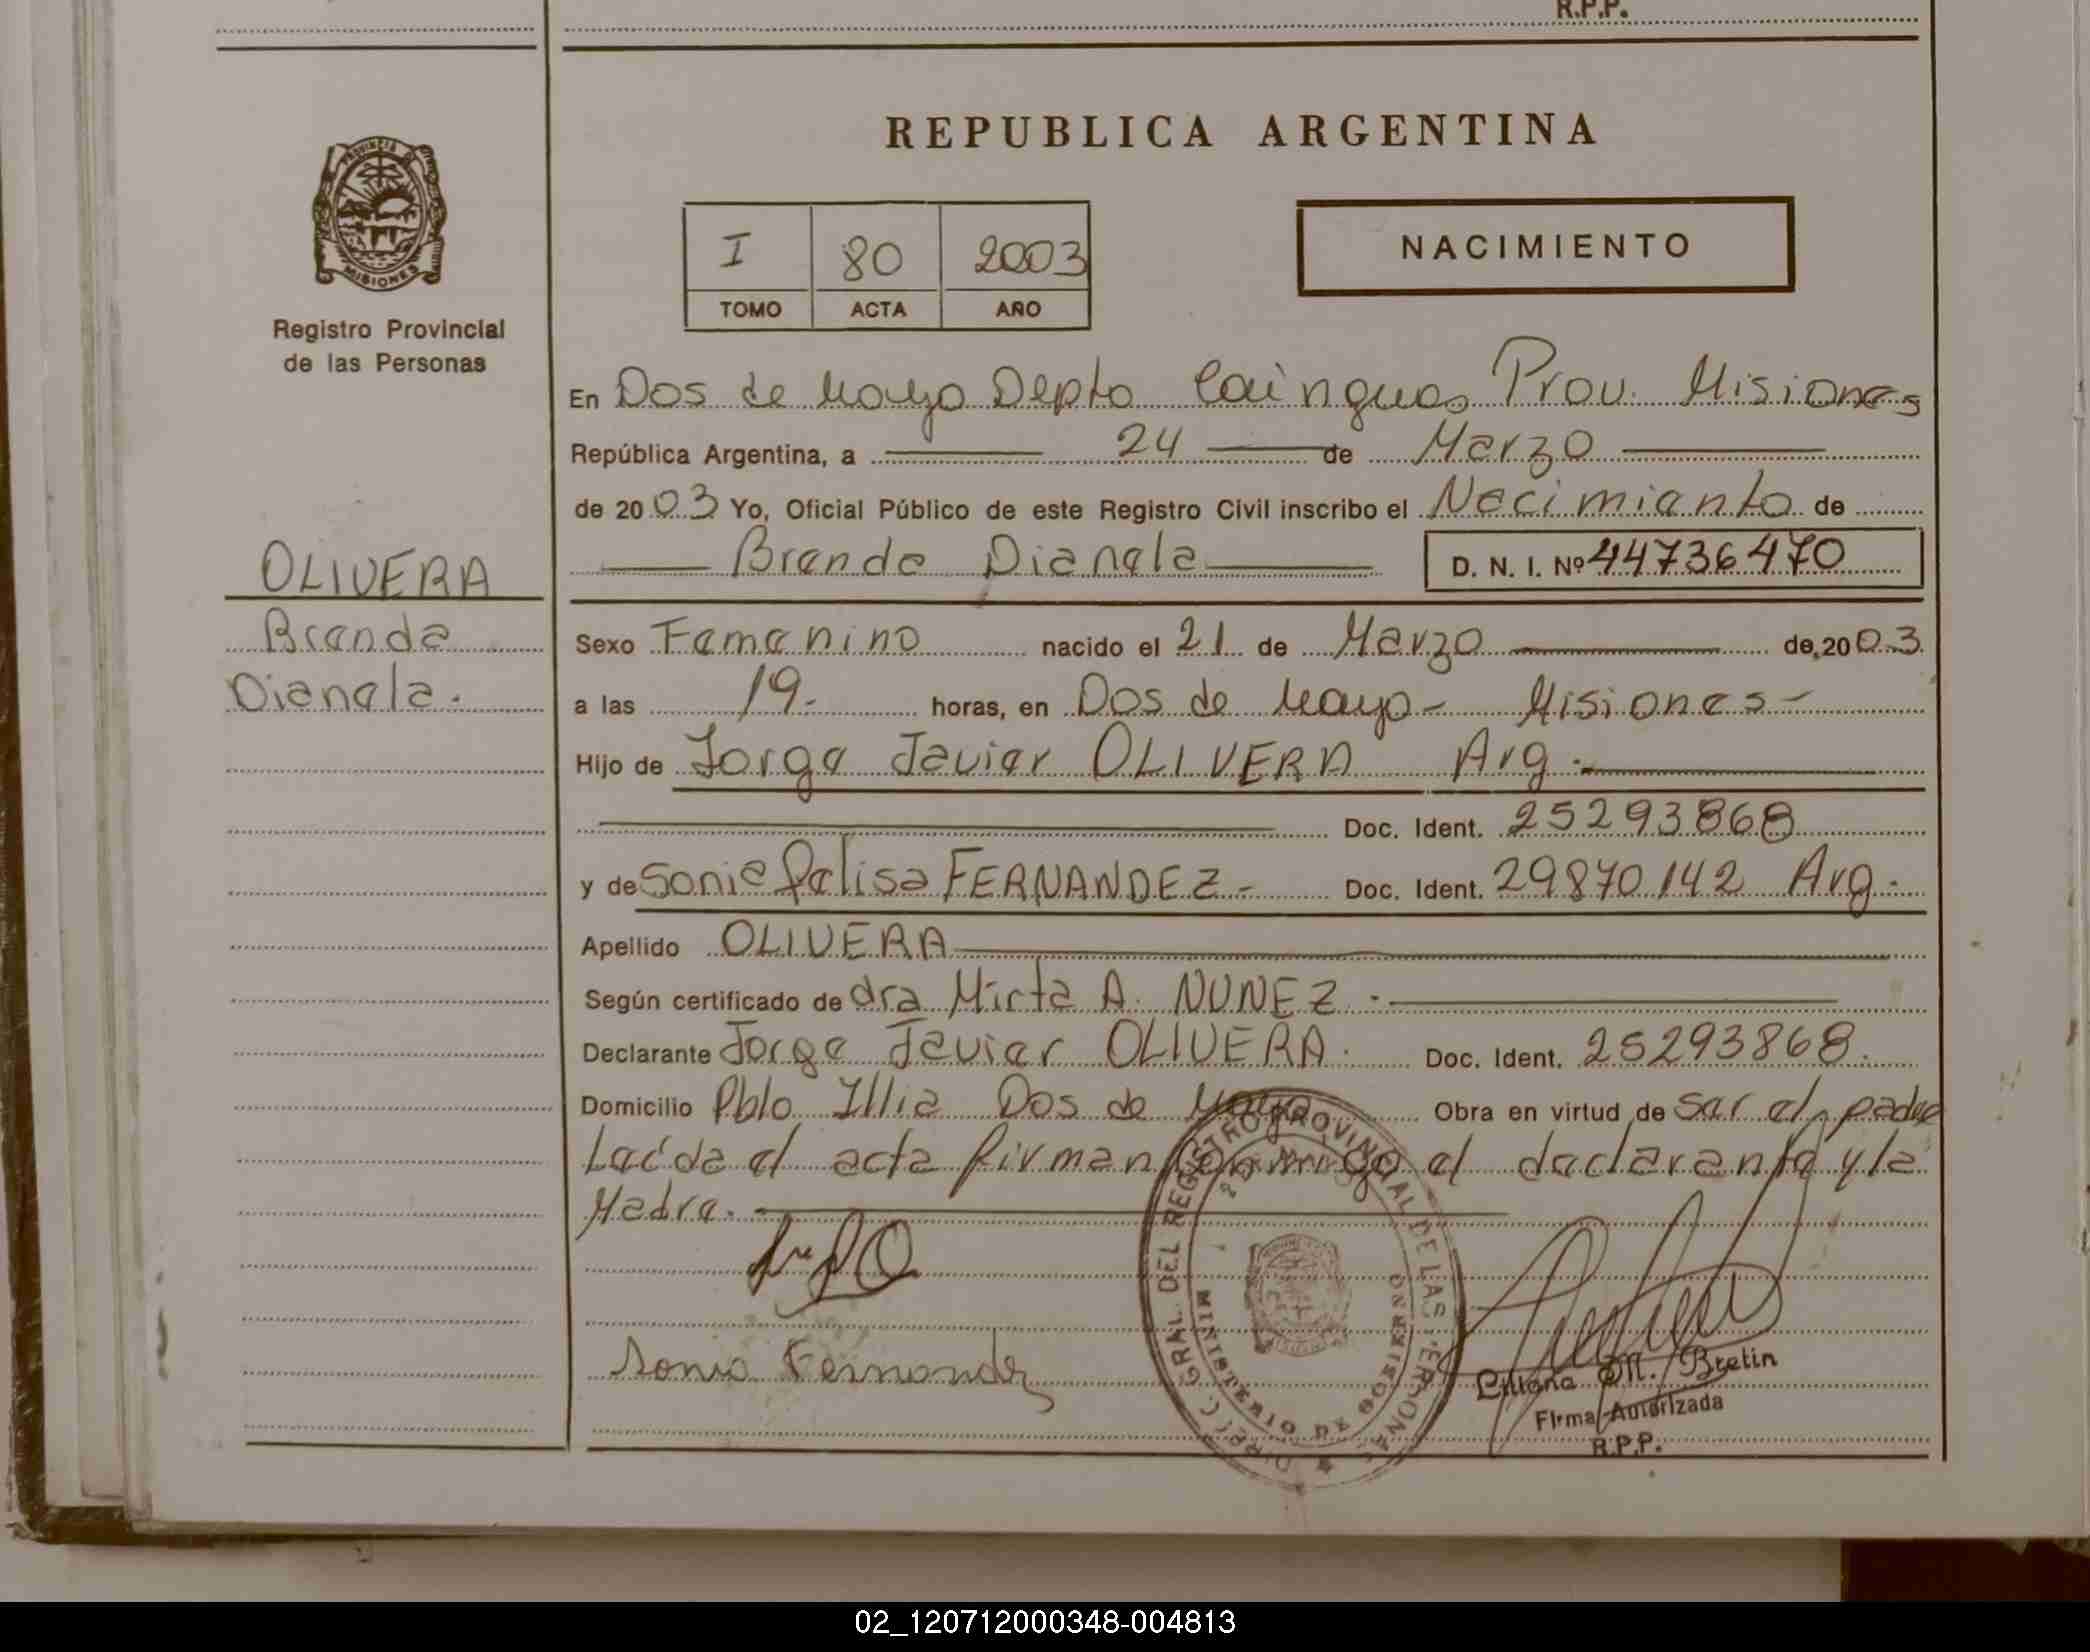 R.P.P.
REPUBLICA ARGENTINA
PROVINCIA DE
MISIONES
I 80 2003
TOMO ACTA AÑO
NACIMIENTO
Registro Provincial
de las Personas
En Dos de Mayo Depto Cainguas Prov. Misiones
República Argentina, a 24 de Marzo
de 2003 Yo, Oficial Público de este Registro Civil inscribo el Nacimiento de
Brenda Dianela D. N. I. Nº 44736470
OLIVERA
Brenda
Dianela.
Sexo Femenino nacido el 21 de Marzo de 2003
a las 19- horas, en Dos de Mayo - Misiones -
Hijo de Jorge Javier OLIVERA Arg.
Doc. Ident. 25293868
y de Sonia Felisa FERNANDEZ - Doc. Ident. 29870142 Arg.
Apellido OLIVERA
Según certificado de dra Mirta A. NUNEZ.
Declarante Jorge Javier OLIVERA. Doc. Ident. 25293868.
Domicilio Pblo Illia Dos de Mayo Obra en virtud de ser el padre
Leída el acta firman conmigo el declarante y la
Madre.
DIREC. GRAL. DEL REGISTRO PROVINCIAL DE LAS PERSONAS
MINISTERIO DE GOBIERNO
Sonia Fernandez
Liliana M. Bretin
Firma Autorizada
R.P.P.
02_120712000348-004813